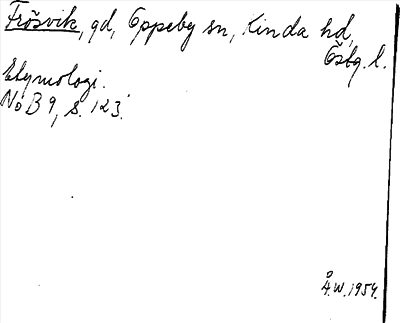 Frösvik, gd, Oppeby sn, Kinda hd,
Östg. l.
Etymologi.
NoB 9, s. 123.
Å.W. 1954.